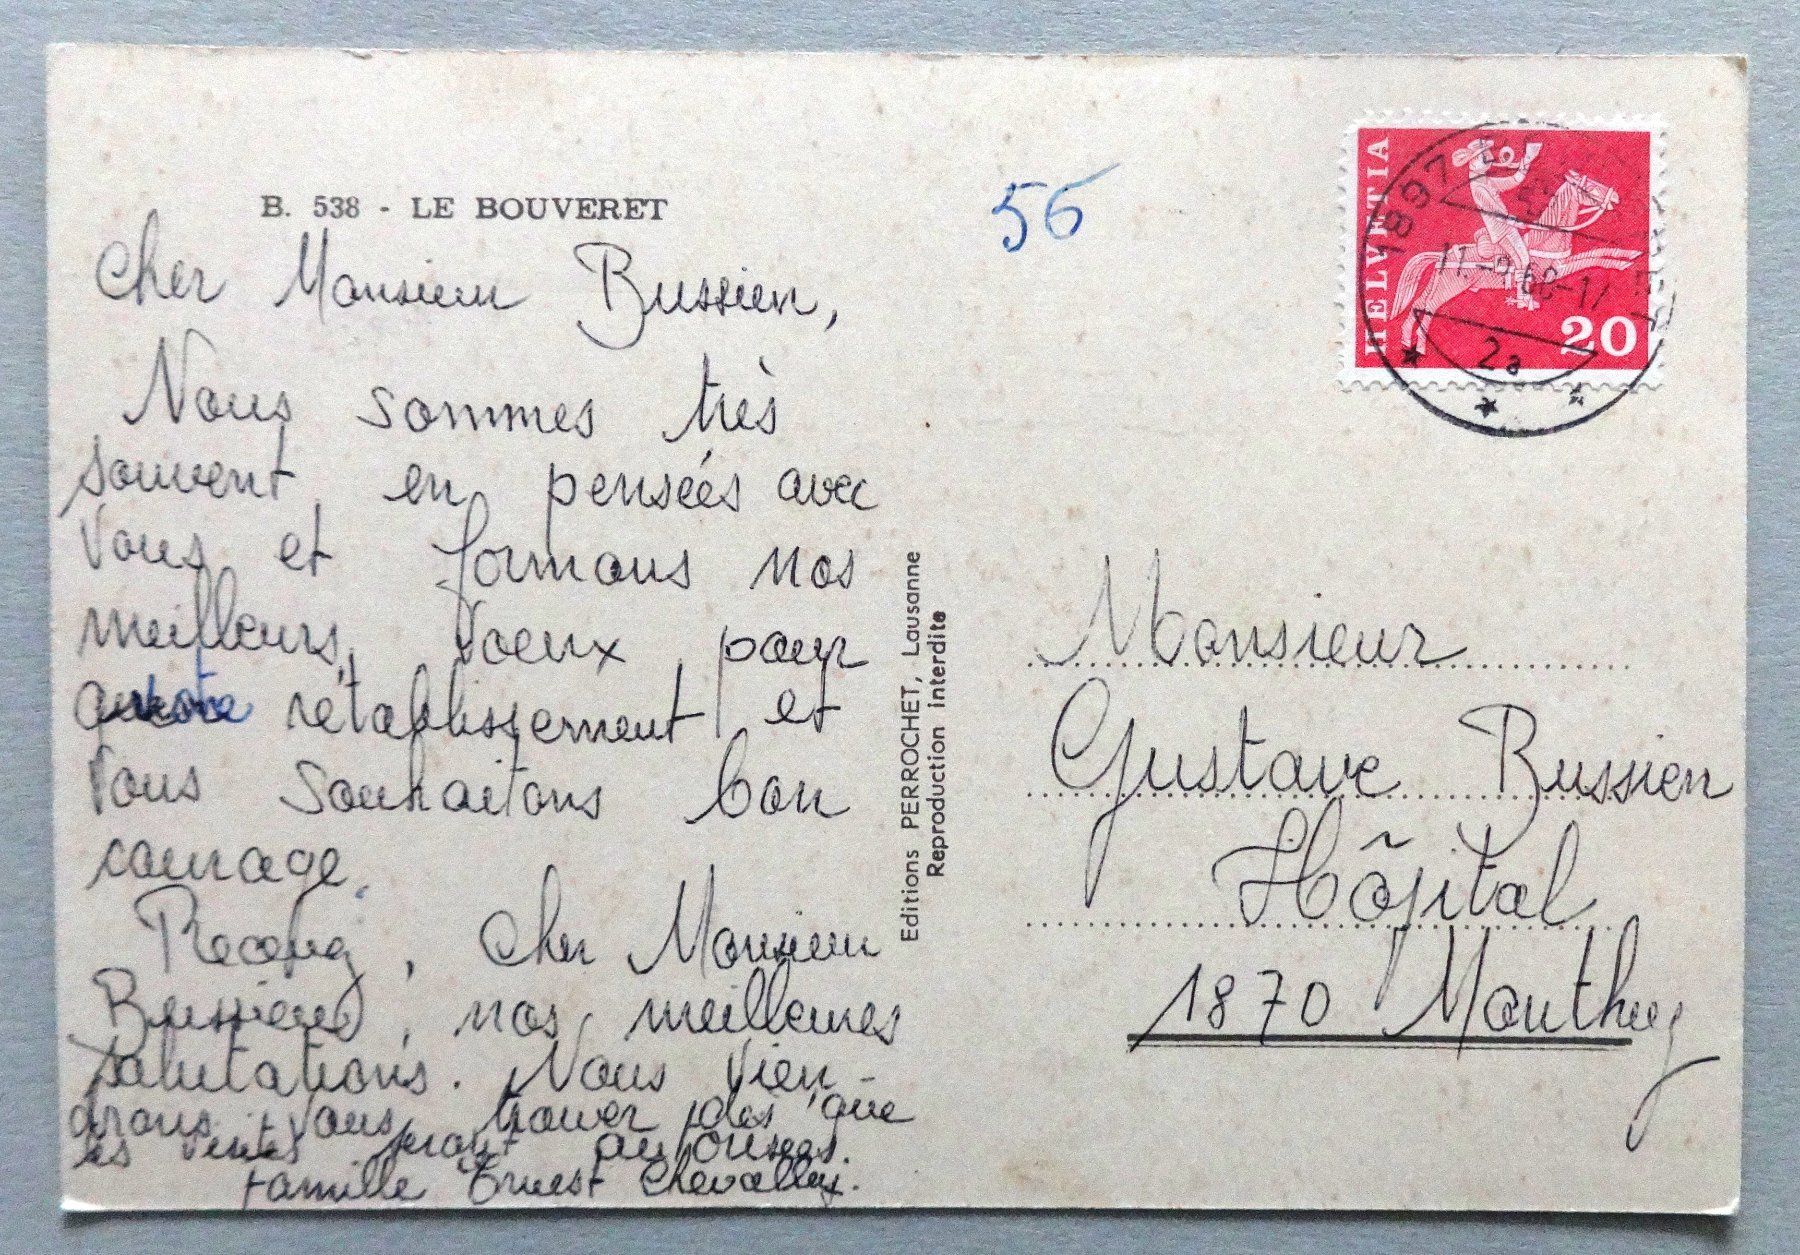 B. 538 - LE BOUVERET
Cher Monsieur Bussien,
Nous sommes très
souvent en pensées avec
vous et formons nos
meilleurs voeux pour
votre rétablissement et
vous souhaitons bon
courage.
Recevez, cher Monsieur
Bussien, nos meilleures
salutations. Nous vien-
drons vous trouver dès que
les visites seront autorisées.
Famille Ernest Chevalley.
Editions PERROCHET, Lausanne
Reproduction interdite
56
HELVETIA
20
1897
11.-9.68-17
2a
Monsieur
Gustave Bussien
Hôpital
1870 Monthey